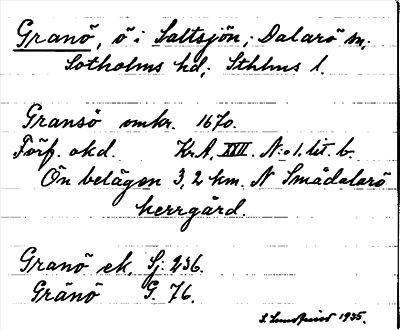 Granö, ö i Saltsjön; Dalarö sn;
Sotholms hd; Sthlms l.
Gransö omkr. 1670.
Förf. okd. Kr.A. XVII. N:o 1. lit. b.
Ön belägen 3,2 km. N Smådalarö
herrgård.
Granö ek. Sj. 236.
Gränö G. 76.
S. Lundquist 1935.